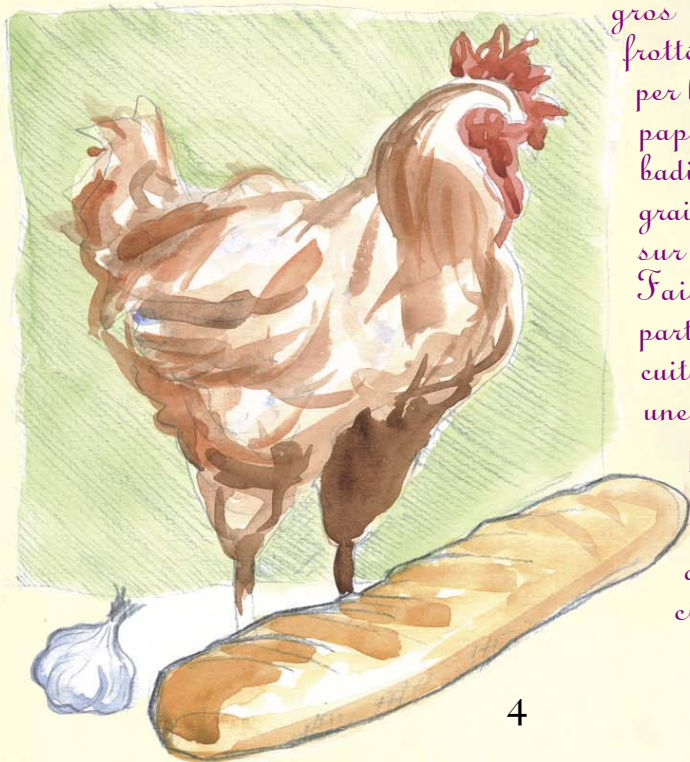 gros
frotté
per l
pap
badi
grai
sur
Fai
part
cuit
une
c
4